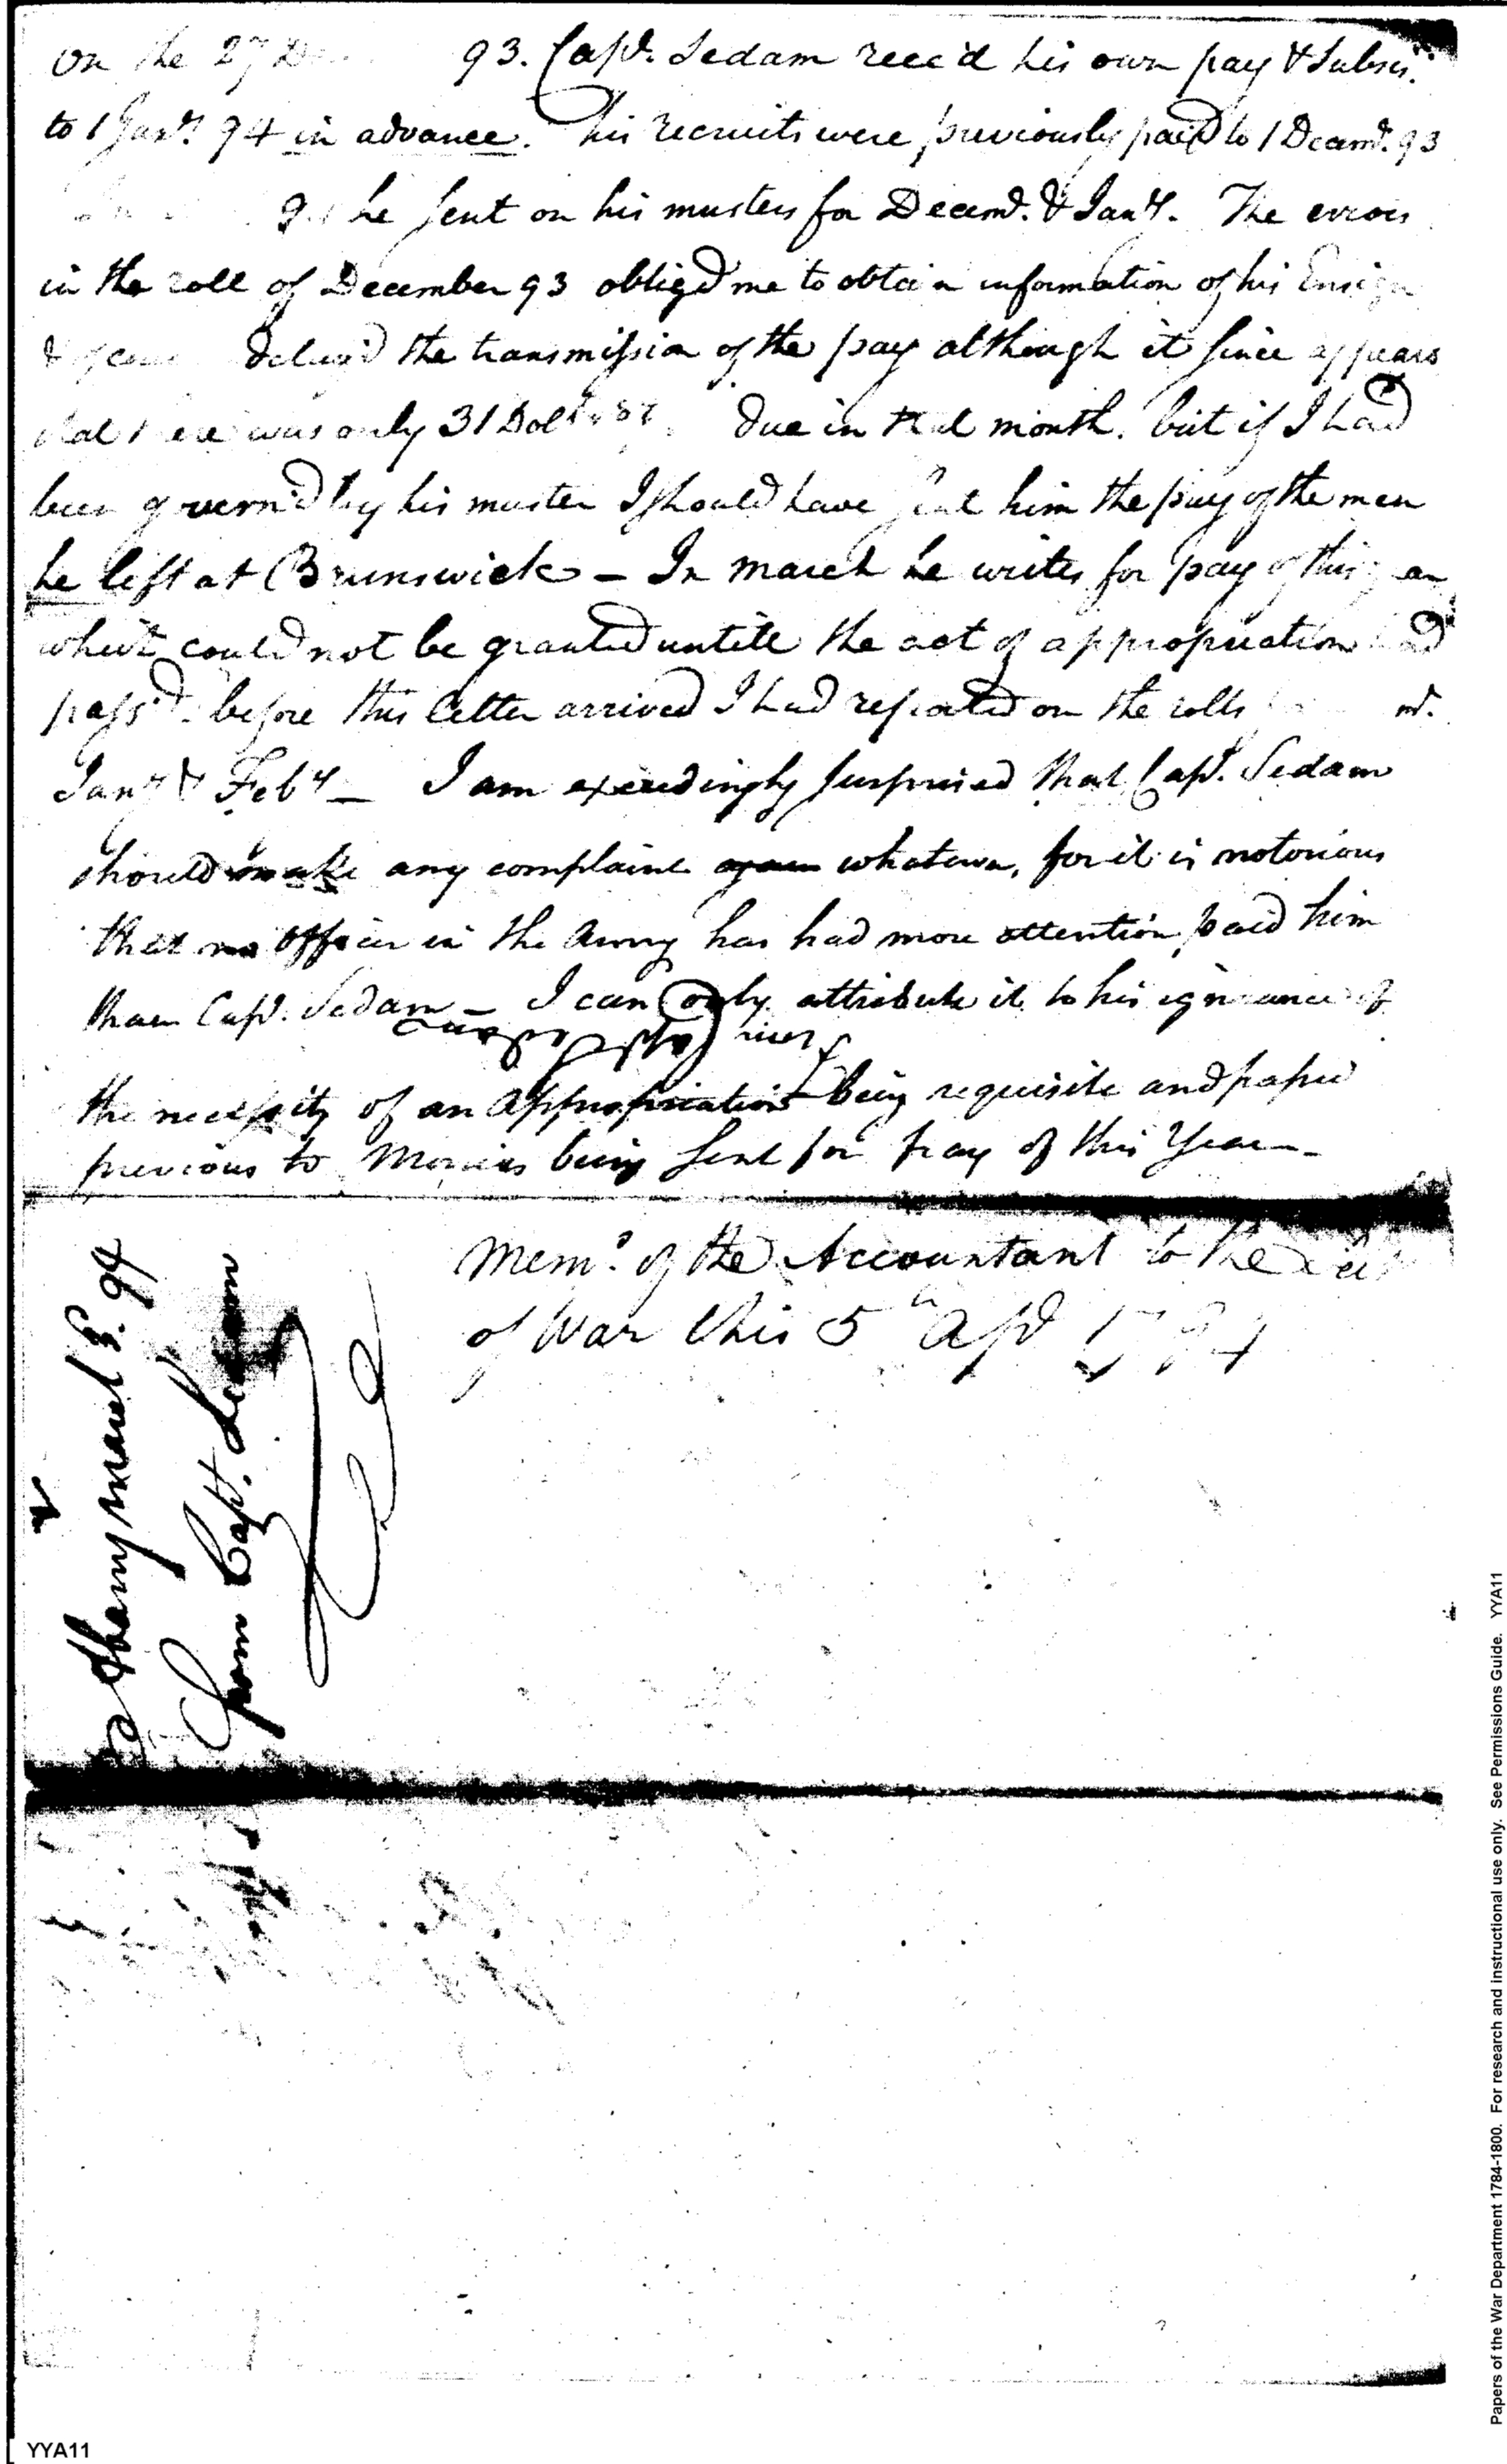 On the 27 93. Capt. Sedam recc'd his own pay & Subsis.
to 1 Jany. 94 in advance. his recruits were previously paid to 1 Decemr. 93
he sent on his musters for Decemr. & Jany. The errors
in the roll of December 93 oblig'd me to obtain information of his Ensign
the transmission of the pay although it since appears
that there was only 31 Dolls due in that month. but if I had
been govern'd by his muster I should have sent him the pay of the men
he left at Brunswick - In march he writes for pay of this year
which could not be granted untill the act of appropriation had
pass'd. before this letter arrived I had reported on the rolls
Jany & Feby - I am exceedingly surprised that Capt. Sedam
should make any complaint whatever, for it is notorious
that no Officer in the Army has had more attention paid him
than Capt. Sedam - I can only attribute it to his ignorance of
the necessity of an Appropriation being requisite and passed
previous to Monies being sent for pay of this Year -
Memo. of the Accountant to the
of War this 5th Apl 1794
Albany March 3. 94
from Capt. Sedam
Papers of the War Department 1784-1800. For research and instructional use only. See Permissions Guide. YYA11
YYA11